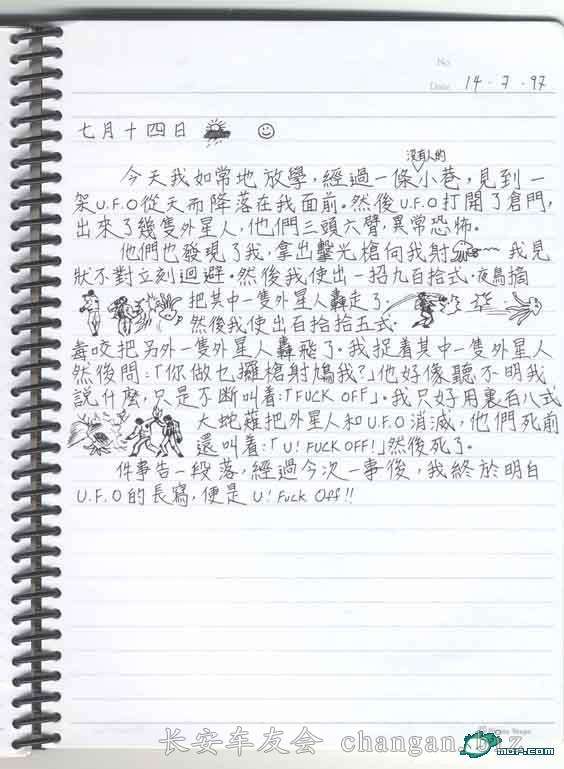 No
Date 14・7・97
七月十四日
没有人的
今天我如常地放學,經過一條小巷,見到一
架U.F.O從天而降落在我面前。然後U.F.O打開了倉門,
出來了幾隻外星人,他們三頭六臂,異常恐怖。
他們也發現了我,拿出擊光槍向我射 我見
狀不對立刻迴避。然後我使出一招九百拾式·
把其中一隻外星人轟走了。
然後我使出百拾拾五式·
毒咬把另外一隻外星人轟飛了。我捉着其中一隻外星人
然後問:「你做乜攞槍射鳩我?」他好像聽不明我
說什麼,只是不斷叫着:「FUCK OFF」。我只好用裏百八式
大蛇薙把外星人和U.F.O消滅,他們死前
還叫着:「U! FUCK OFF!」然後死了。
件事告一段落,經過今次一事後,我終於明白
U.F.O的長寫,便是U! Fuck Off!!
长安车友会 changan.b z
MOP.com